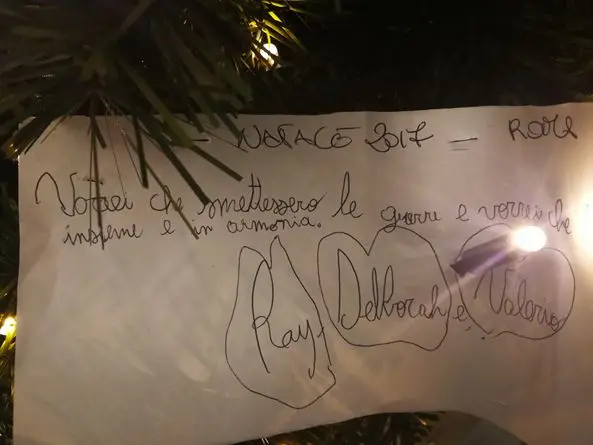 - NATALE 2017 - ROMA
Vorrei che smettessero le guerre e vorrei che
insieme e in armonia.
Ray, Debborah e Valerio